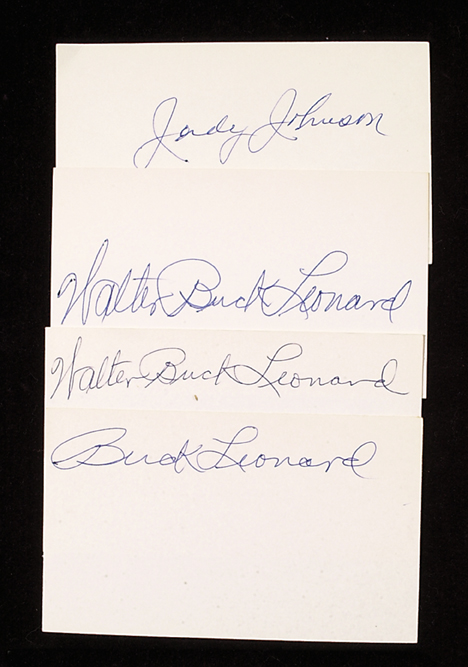 Judy Johnson
Walter Buck Leonard
Walter Buck Leonard
Buck Leonard